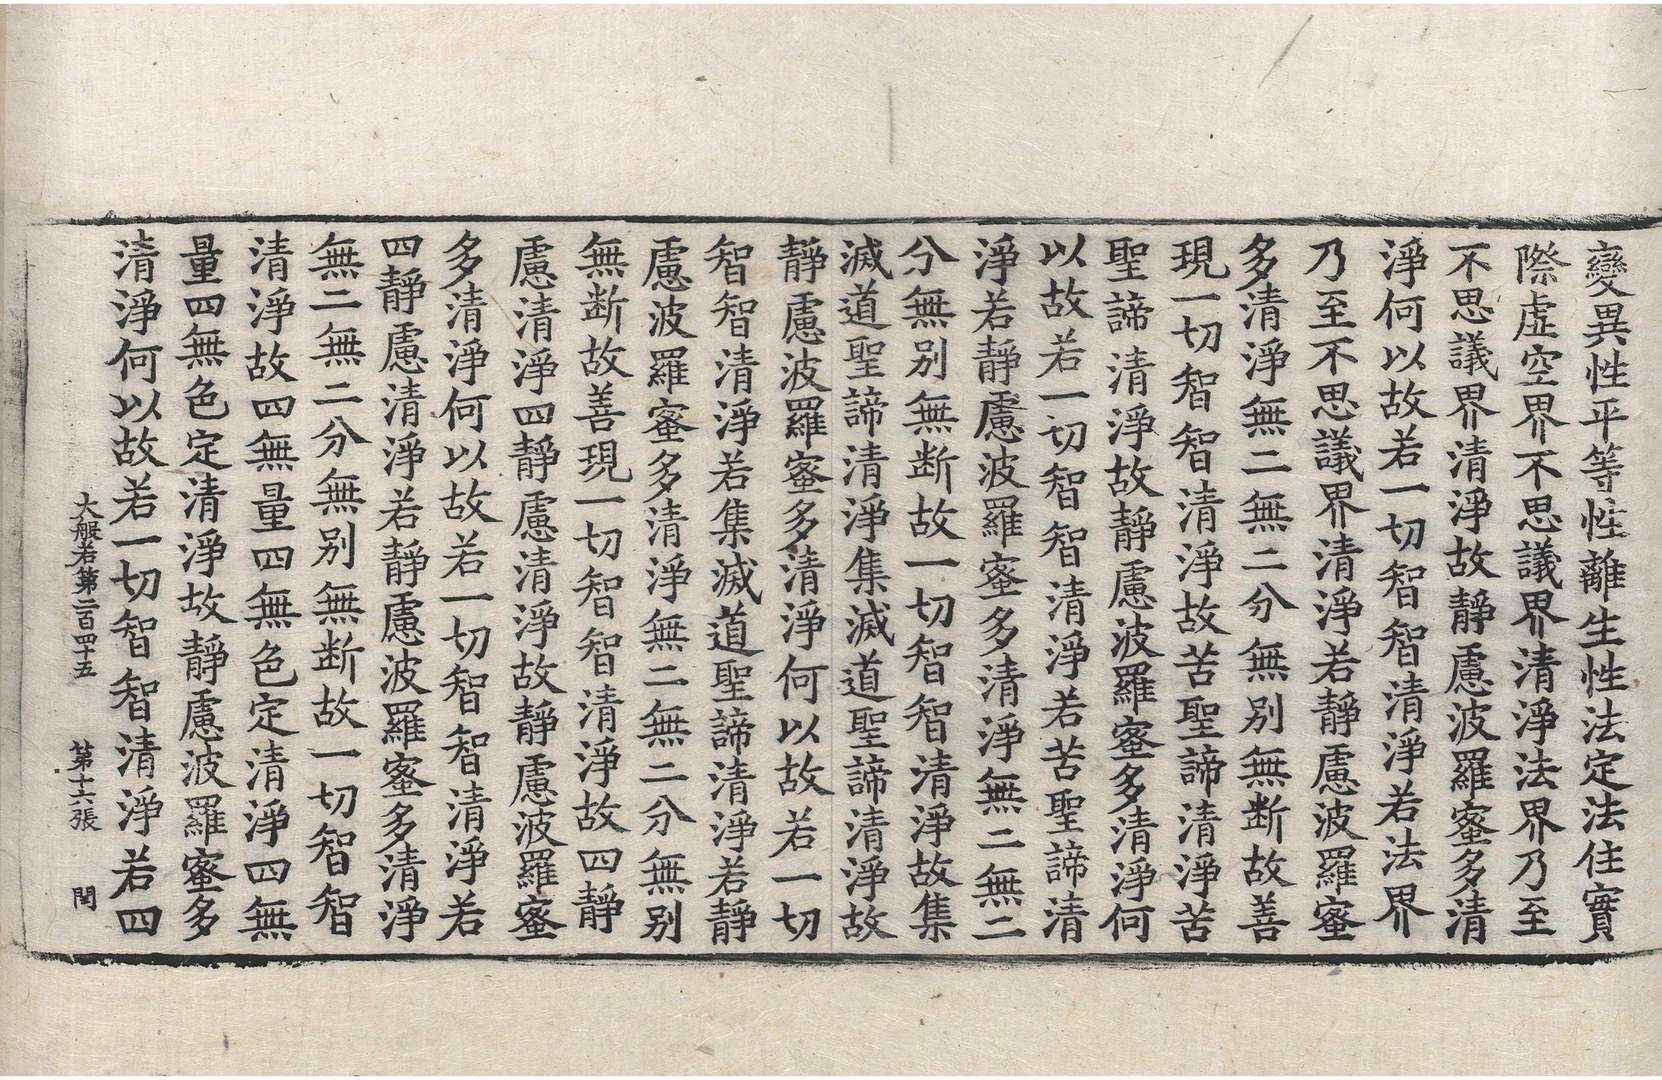 變異性平等性離生性法定法住實
際虛空界不思議界清淨法界乃至
不思議界清淨故靜慮波羅蜜多清
淨何以故若一切智智清淨若法界
乃至不思議界清淨若靜慮波羅蜜
多清淨無二無二分無别無断故善
現一切智智清淨故苦聖諦清淨苦
聖諦清淨故靜慮波羅蜜多清淨何
以故若一切智智清淨若苦聖諦清
淨若靜慮波羅蜜多清淨無二無二
分無别無断故一切智智清淨故集
滅道聖諦清淨集滅道聖諦清淨故
靜慮波羅蜜多清淨何以故若一切
智智清淨若集滅道聖諦清淨若靜
慮波羅蜜多清淨無二無二分無别
無断故善現一切智智清淨故四靜
慮清淨四靜慮清淨故靜慮波羅蜜
多清淨何以故若一切智智清淨若
四靜慮清淨若靜慮波羅蜜多清淨
無二無二分無别無断故一切智智
清淨故四無量四無色定清淨四無
量四無色定清淨故靜慮波羅蜜多
清淨何以故若一切智智清淨若四
大般若第二百四十五 第十六張 閏